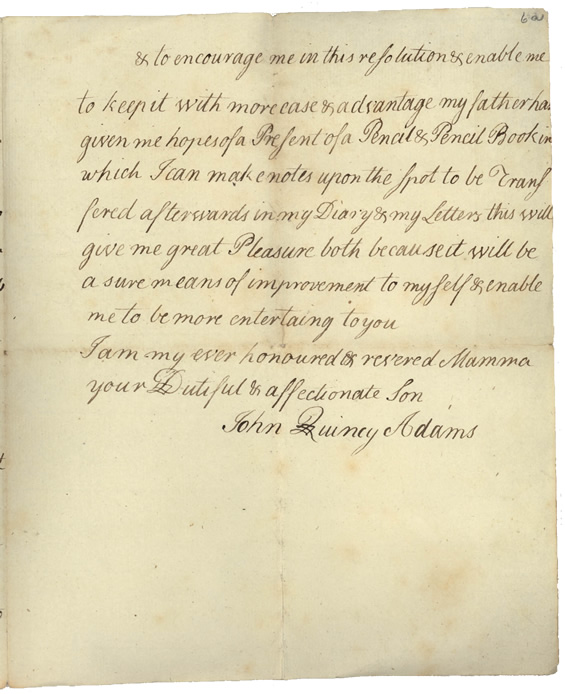 6a
& to encourage me in this resolution & enable me
to keep it with more ease & advantage my father has
given me hopes of a Present of a Pencil & Pencil Book in
which I can make notes upon the spot to be Trans
fered afterwards in my Diary & my Letters this will
give me great Pleasure both because it will be
a sure means of improvement to myself & enable
me to be more entertaing to you
I am my ever honoured & revered Mamma
your Dutiful & affectionate Son
John Quincy Adams